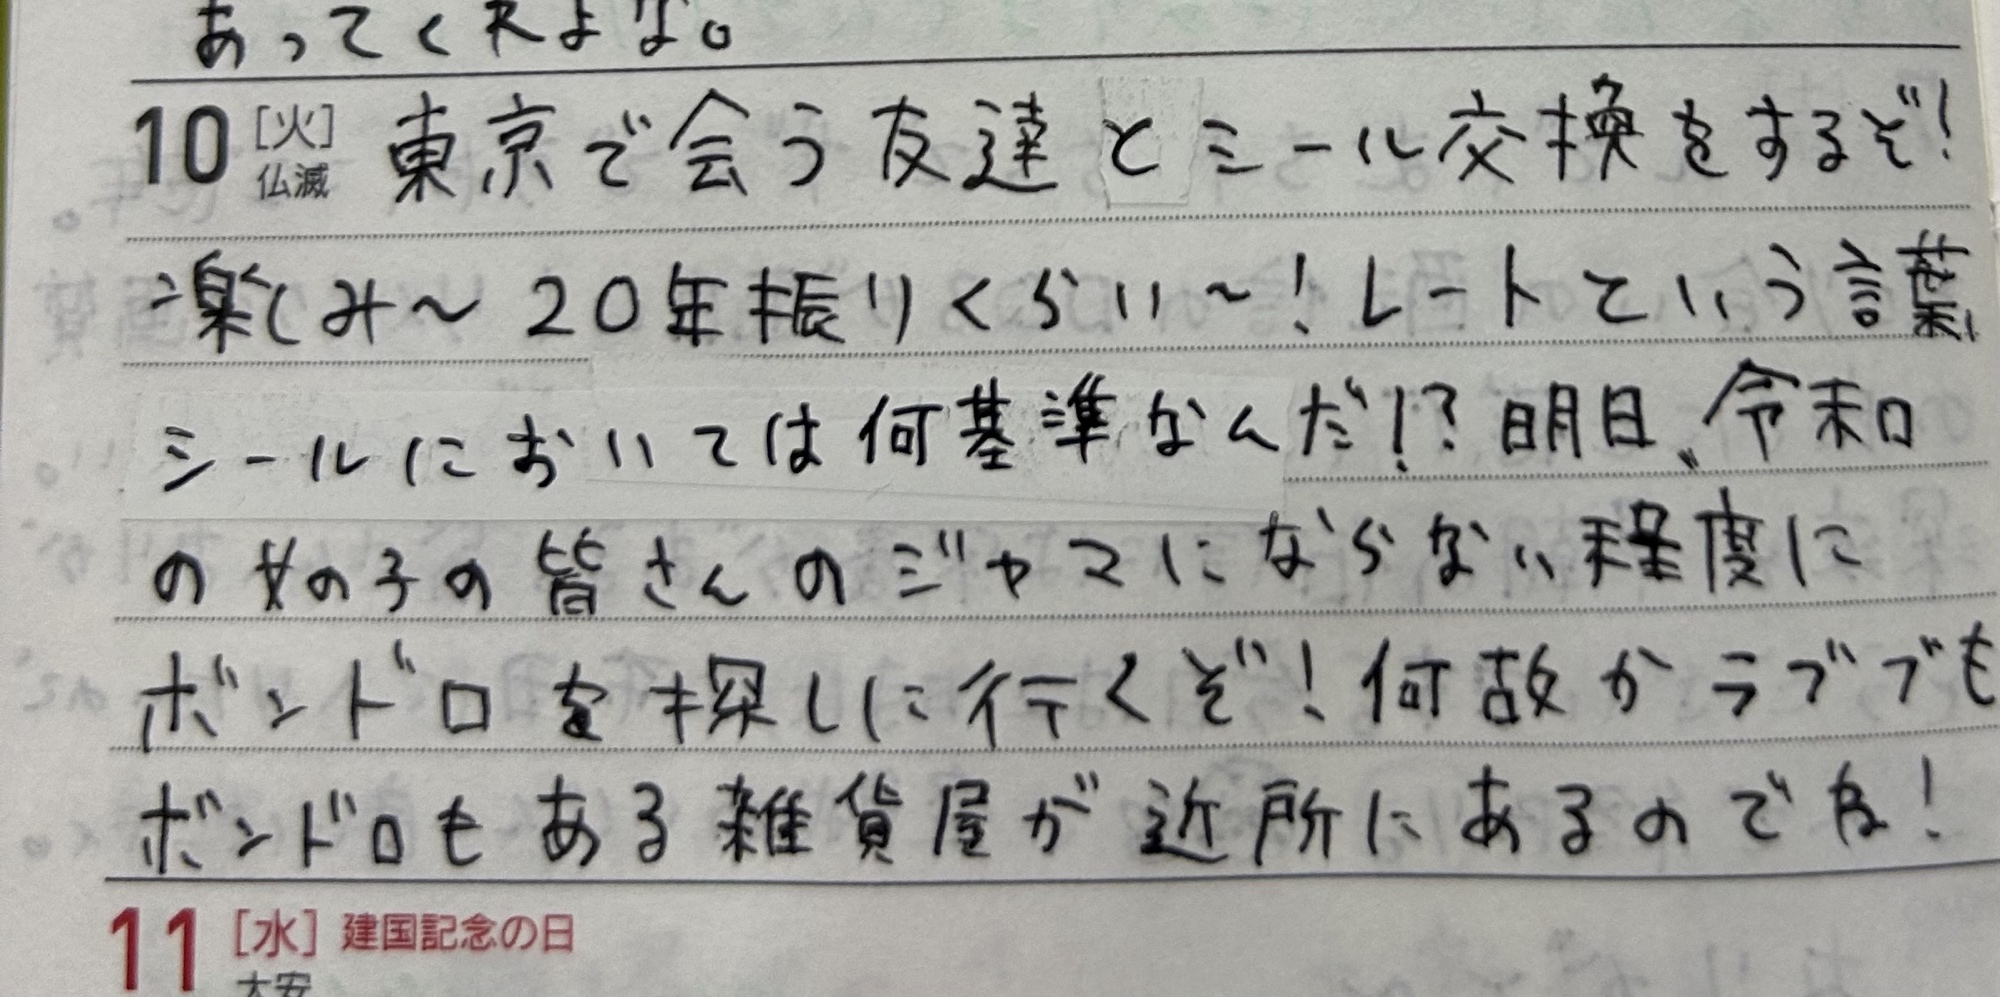 あってくれよな。
10 [火] 東京で会う友達とシール交換をするぞ!
仏滅
楽しみ〜20年振りくらい〜!レートという言葉、
シールにおいては何基準なんだ!?明日、令和
の女の子の皆さんのジャマにならない程度に
ボンドロを探しに行くぞ!何故かラブブも
ボンドロもある雑貨屋が近所にあるのでな!
11 [水] 建国記念の日
大安